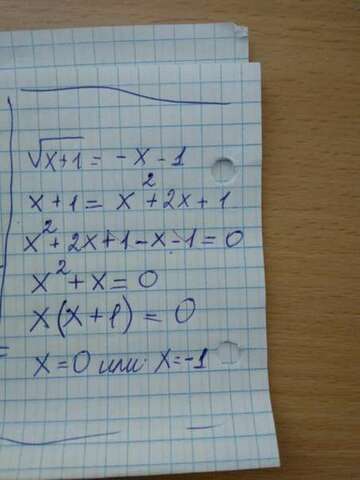 √x+1 = -x-1
x+1 = x²+2x+1
x²+2x+1-x-1=0
x²+x=0
x(x+1)=0
x=0 или x=-1